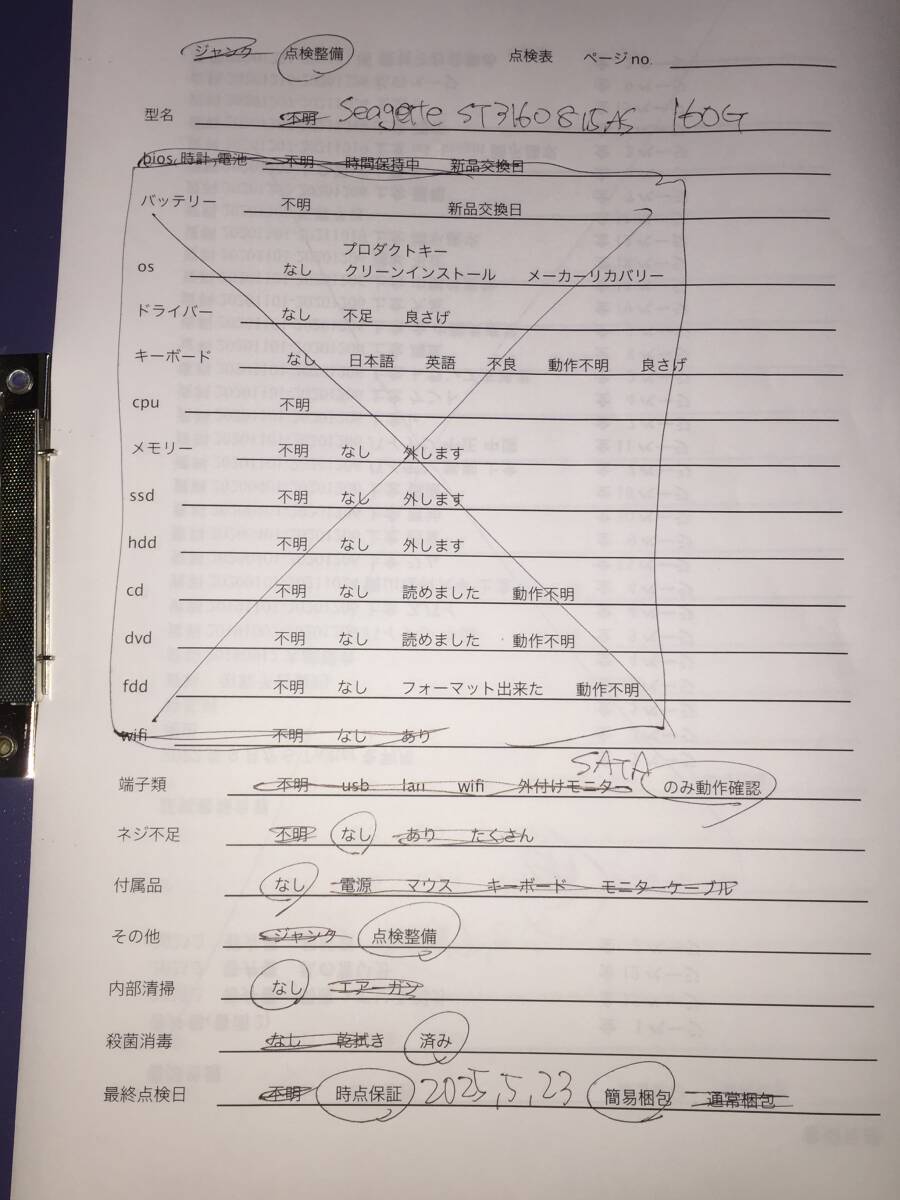 ジャンク 点検整備 点検表 ページno.
型名 不明 Seagate ST3160815AS 160G
bios,時計,電池 不明 時間保持中 新品交換日
バッテリー 不明 新品交換日
プロダクトキー
os なし クリーンインストール メーカーリカバリー
ドライバー なし 不足 良さげ
キーボード なし 日本語 英語 不良 動作不明 良さげ
cpu 不明
メモリー 不明 なし 外します
ssd 不明 なし 外します
hdd 不明 なし 外します
cd 不明 なし 読めました 動作不明
dvd 不明 なし 読めました 動作不明
fdd 不明 なし フォーマット出来た 動作不明
wifi 不明 なし あり
SATA
端子類 不明 usb lan wifi 外付けモニター のみ動作確認
ネジ不足 不明 なし あり たくさん
付属品 なし 電源 マウス キーボード モニターケーブル
その他 ジャンク 点検整備
内部清掃 なし エアーガン
殺菌消毒 なし 乾拭き 済み
最終点検日 不明 時点保証 2025,5,23 簡易梱包 通常梱包